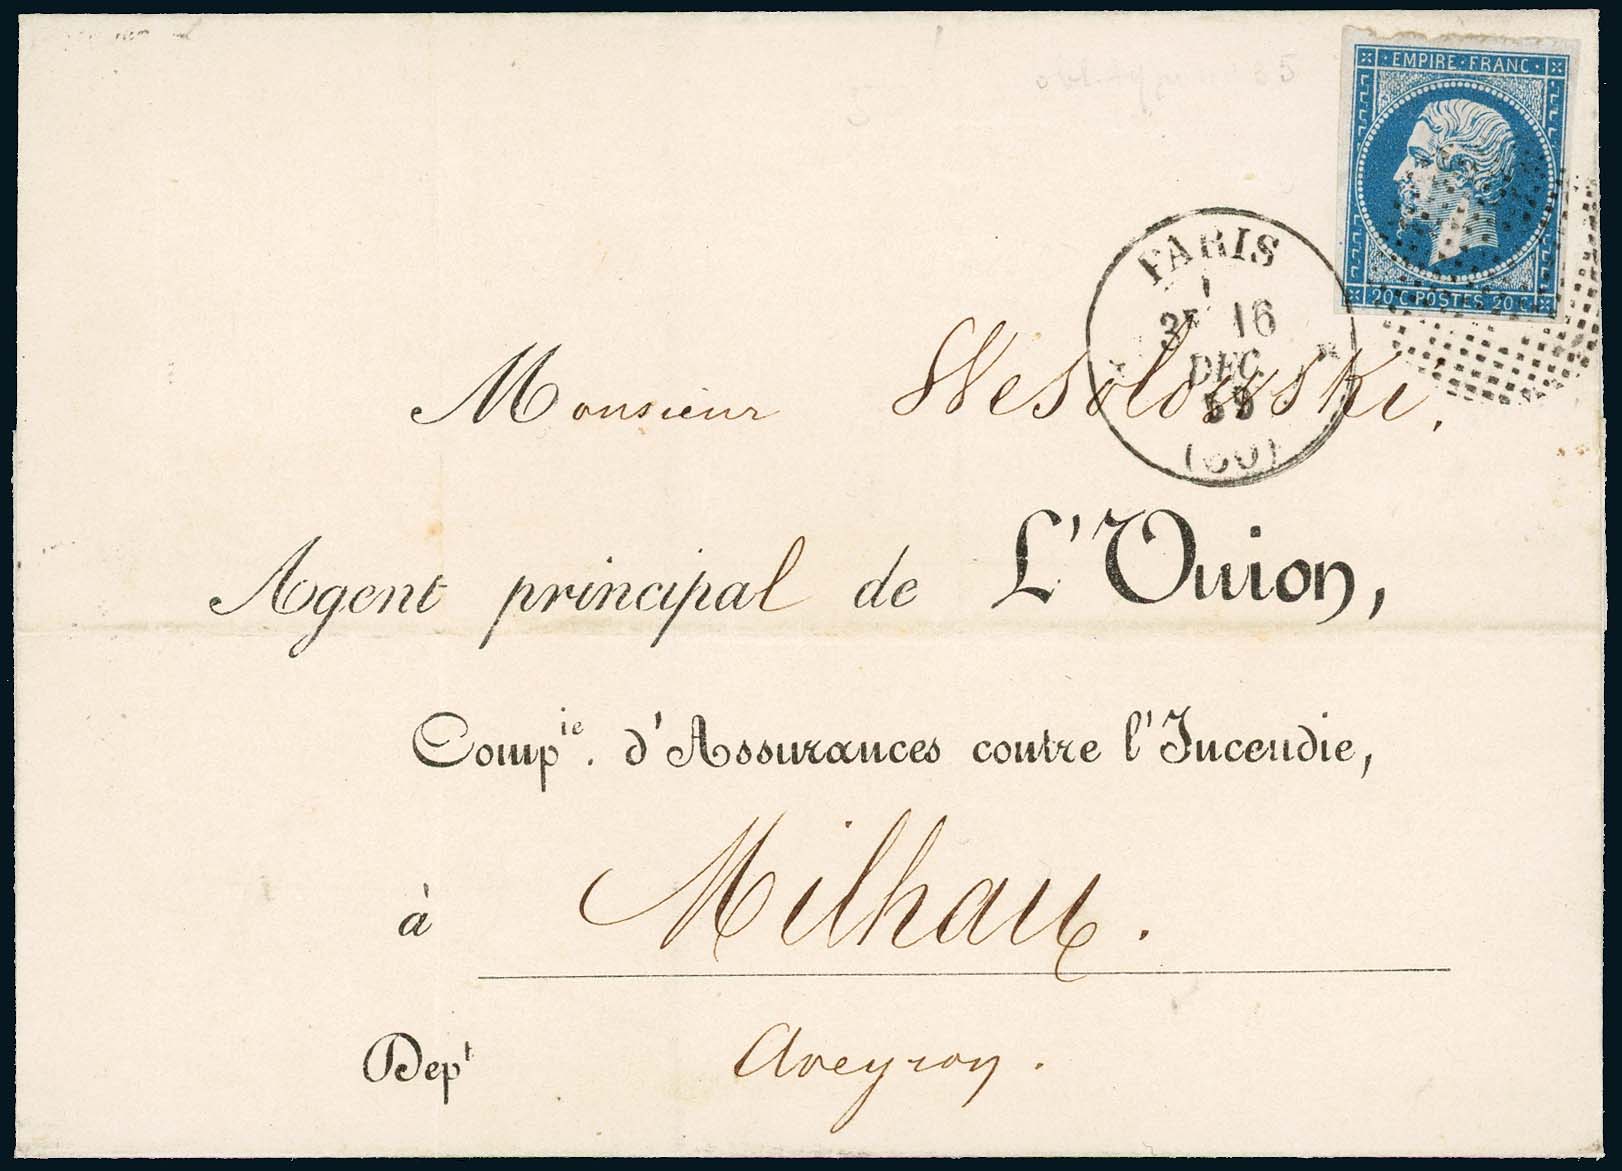 EMPIRE · FRANC ·
20 C POSTES 20 C
PARIS
16
DEC.
59
(60)
Monsieur Wesolowski.
Agent principal de L'Union,
Compie. d'Assurances contre l'Incendie,
à Milhau.
Dept Aveyron.